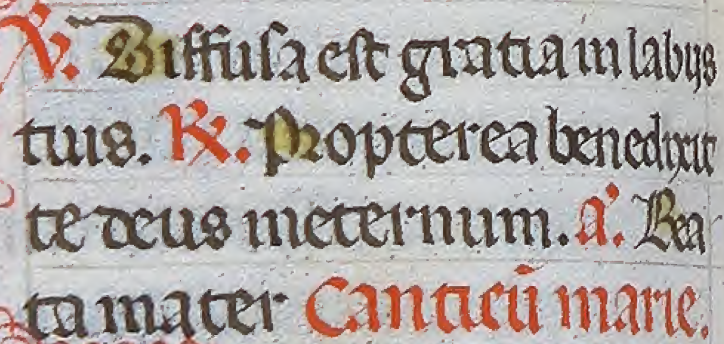 ℣. Diffusa est gratia in labijs
tuis. ℟. Propterea benedixit
te deus ineternum. a͛. Bea
ta mater Canticū marie.